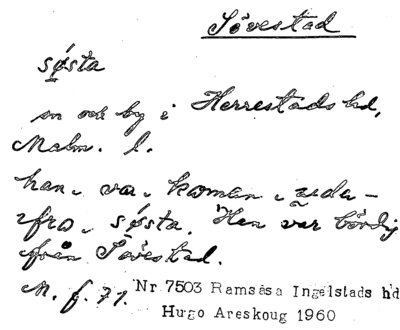 Sövestad
sø̱sta
sn och by i Herrestads hd,
Malm. l.
han, va, koman, ı̱da-
ifrå, sø̱sta. Han var bördig
från Sövestad.
M. f. 71. Nr 7503 Ramsåsa Ingelstads hd
Hugo Areskoug 1960